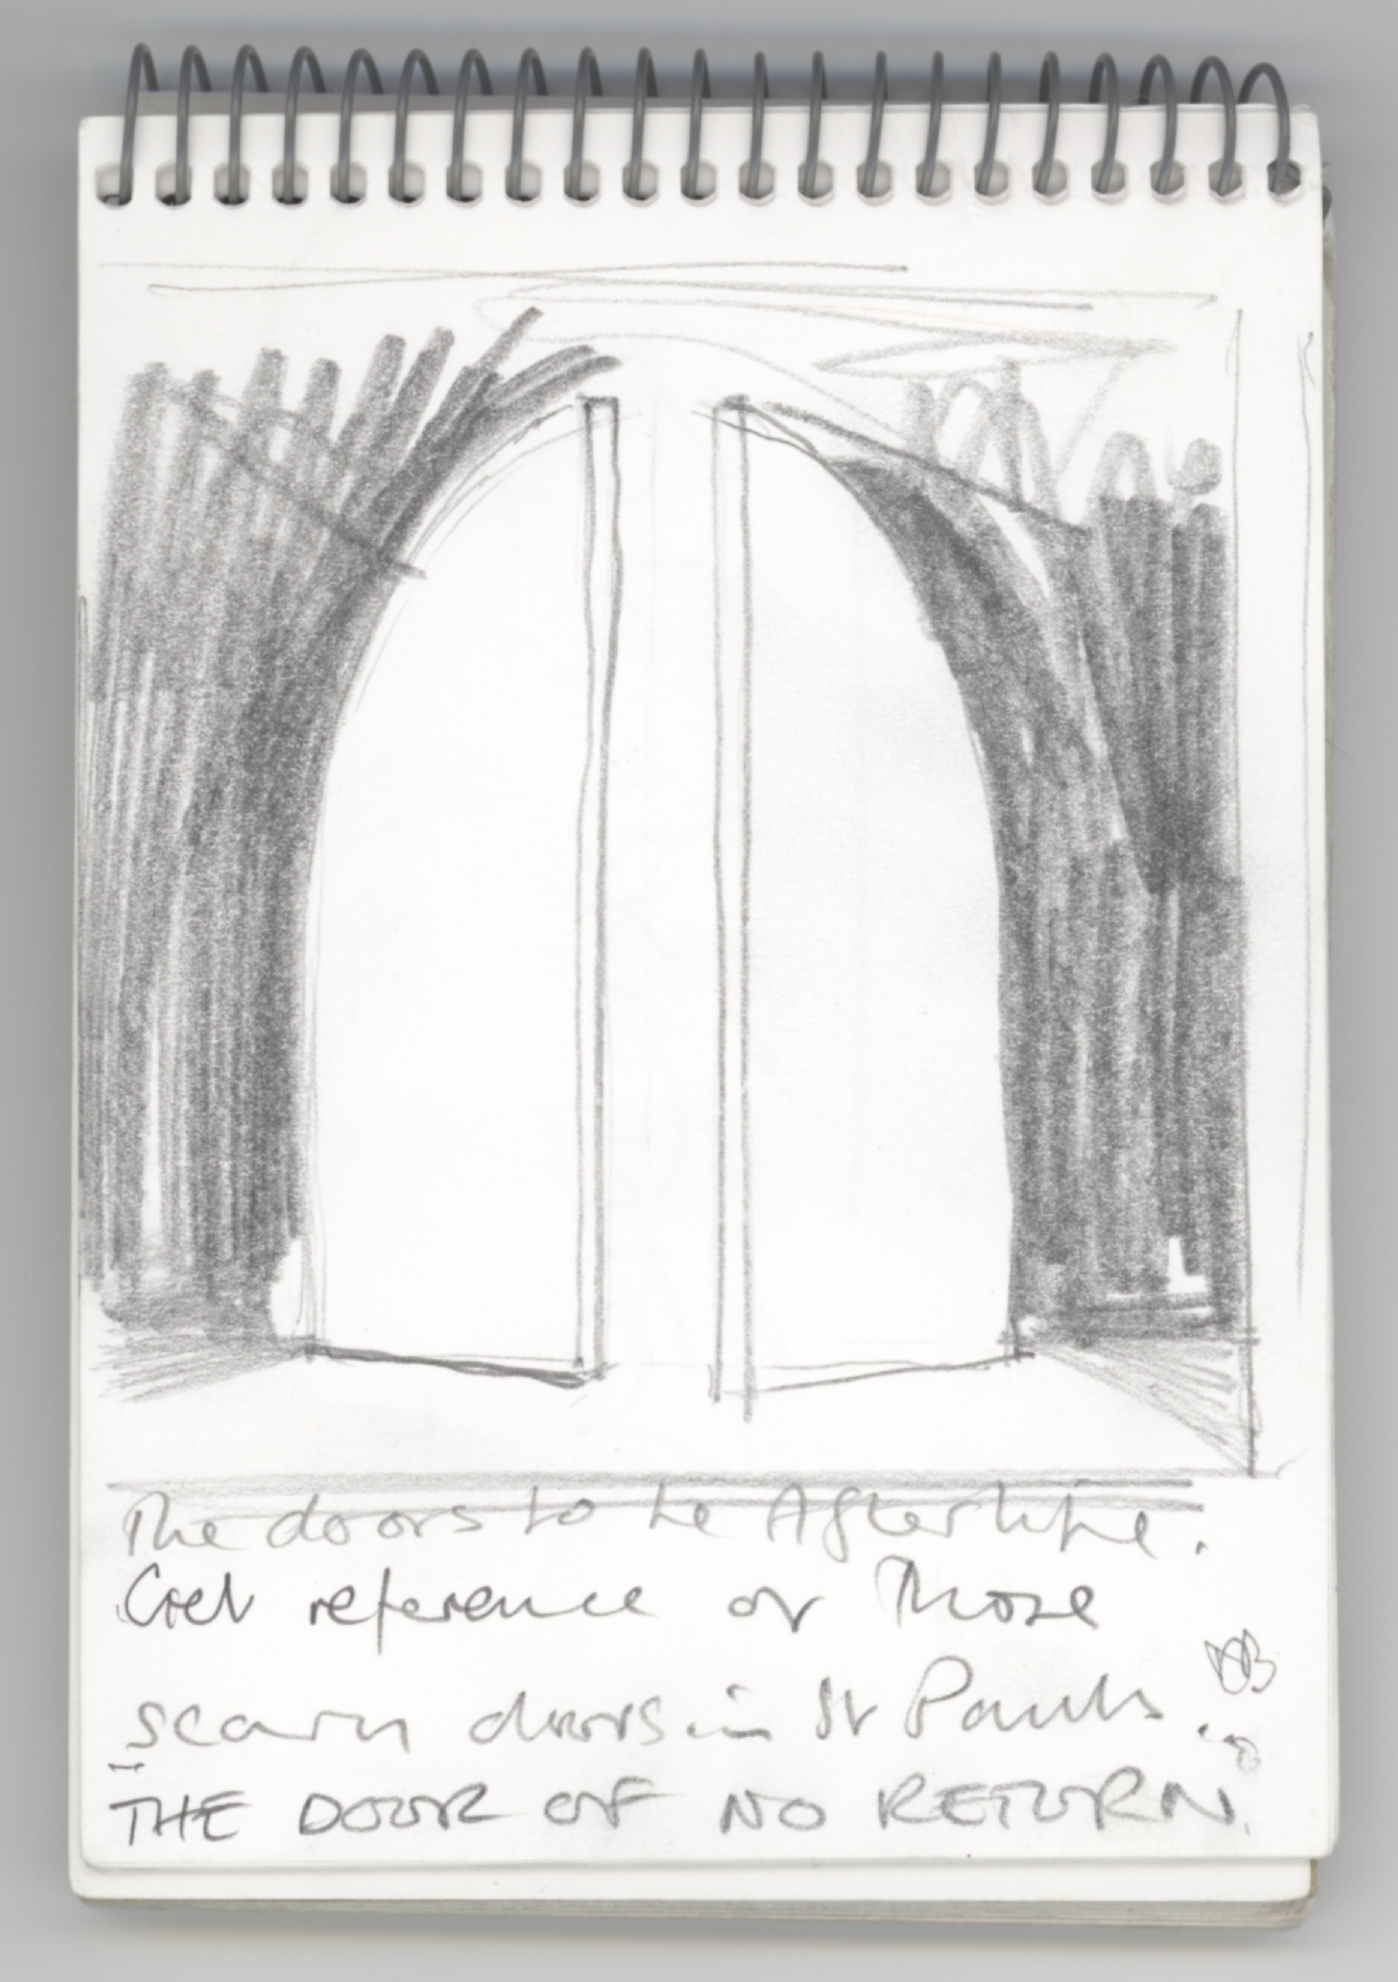 The doors to the Afterlife.
Get reference of Those
scary doors in St Pauls.
THE DOOR OF NO RETURN.